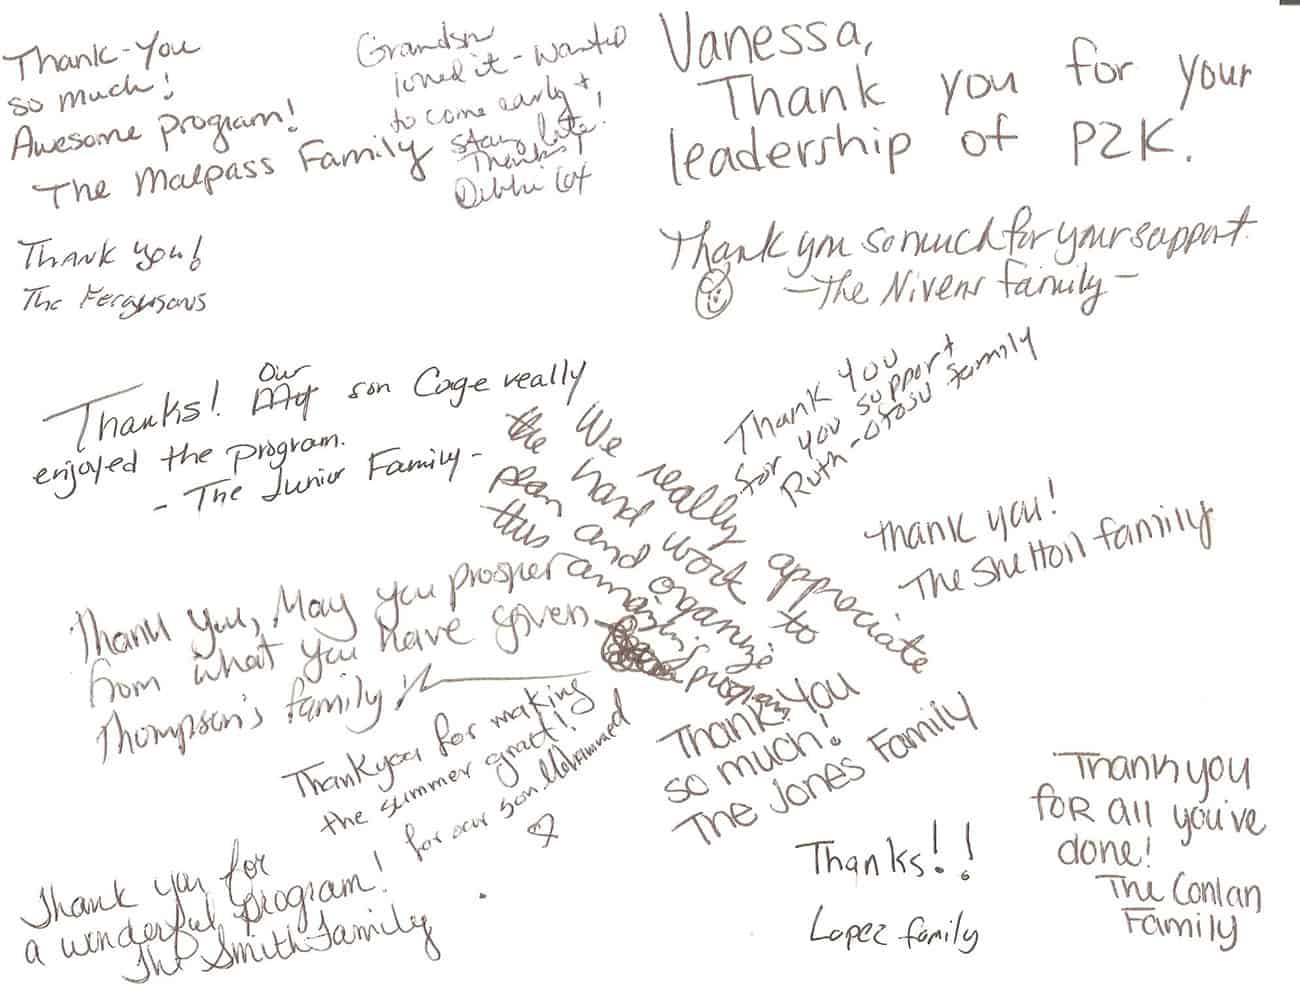 Thank-You
so much!
Awesome program!
The Malpass Family
Grandson
loved it - wanted
to come early +
stay late!
Thanks!
Debbi Cox
Vanessa,
Thank you for your
leadership of P2K.
Thank you!
The Fergusons
Thank you so much for your support.
- The Nivens family -
Thanks! Our son Cage really
enjoyed the program.
- The Junior Family -
Thank You
for you support
Ruth - Ofosu family
We really appreciate
the hard work to
plan and organize
this amazing program
Thank you!
The Shelton family
Thank you, May you prosper
from what you have given
Thompson's family
Thank you for making
the summer great!
for our son Mohammed
Thank You
so much!
The Jones Family
Thank you
for all you've
done!
The Conlan
Family
Thanks!!
Lopez family
Thank you for
a wonderful program!
The Smith Family